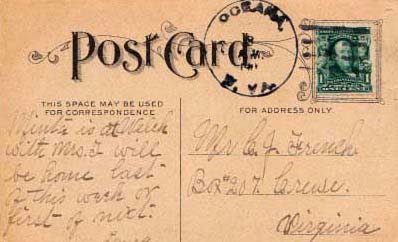 OCEANA,
W. VA.
Post Card.
1 1
ONE CENT
THIS SPACE MAY BE USED
FOR CORRESPONDENCE
FOR ADDRESS ONLY.
is at
with Mrs. I will
be home last
of this week or
first of next.
Mr C. J. French
Box #207.
Virginia